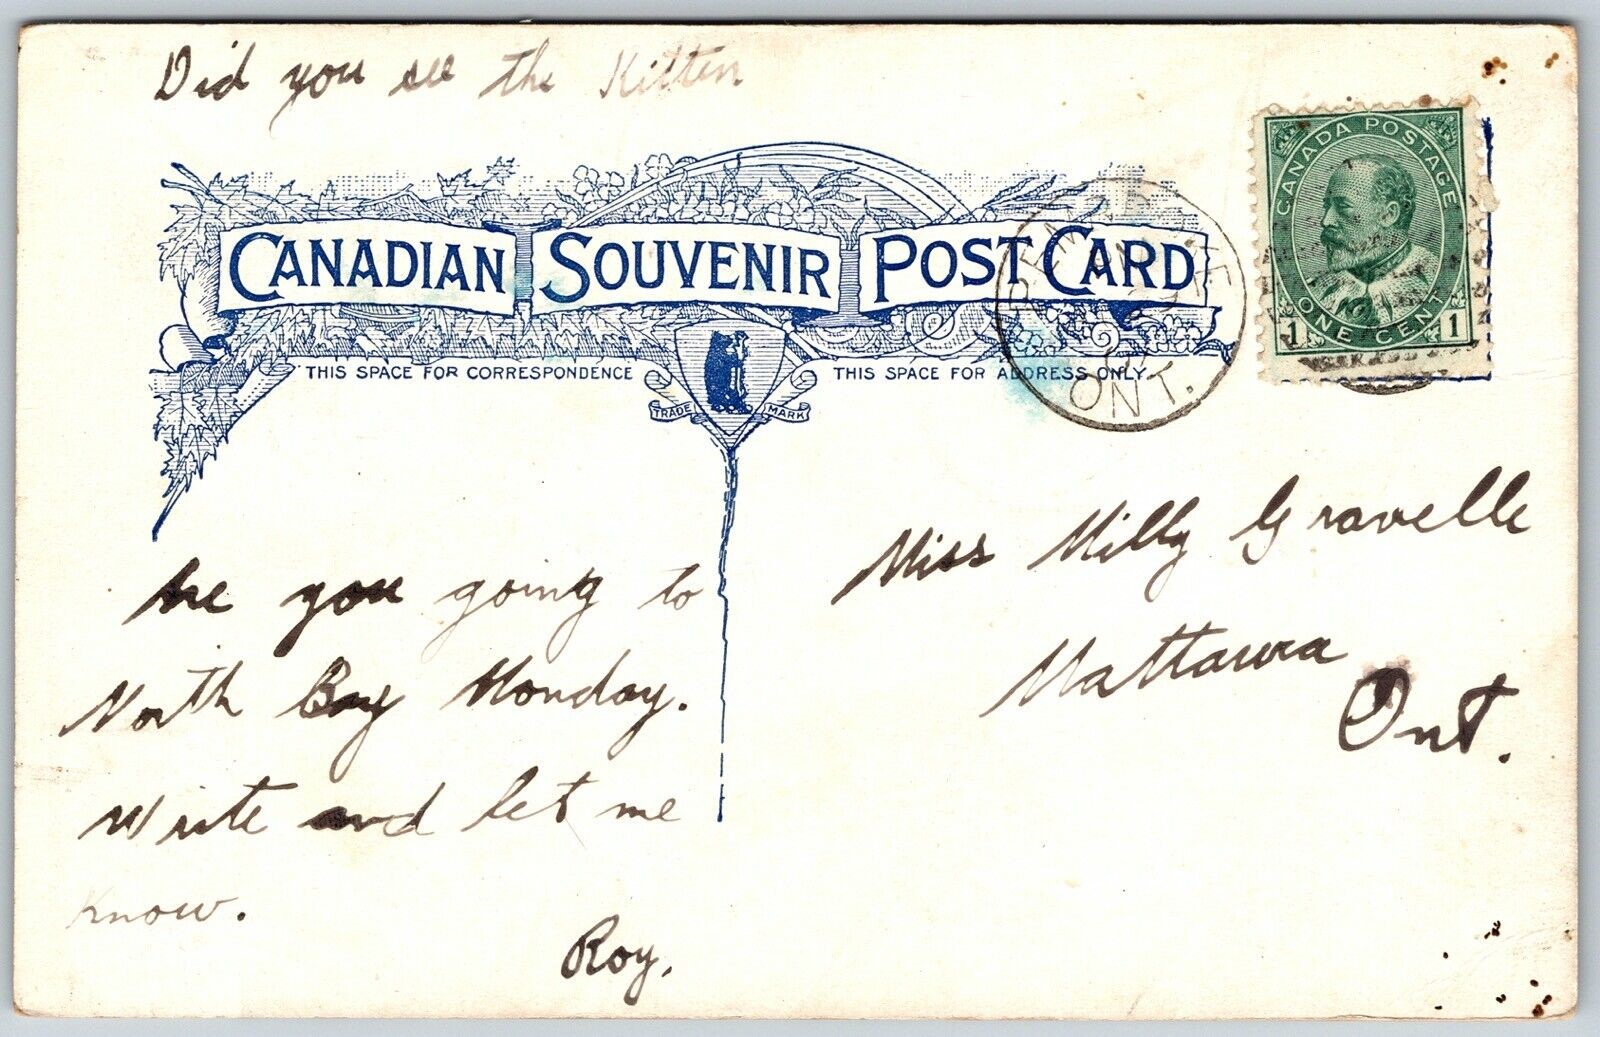 Did you see the Kitten
CANADA POSTAGE
ONE CENT
1 1
CANADIAN SOUVENIR POST CARD
THIS SPACE FOR CORRESPONDENCE
THIS SPACE FOR ADDRESS ONLY.
TRADE MARK
ONT.
Are you going to
North Bay Monday.
Write and let me
Know.
Roy.
Miss Milly Gravelle
Mattawa
Ont.